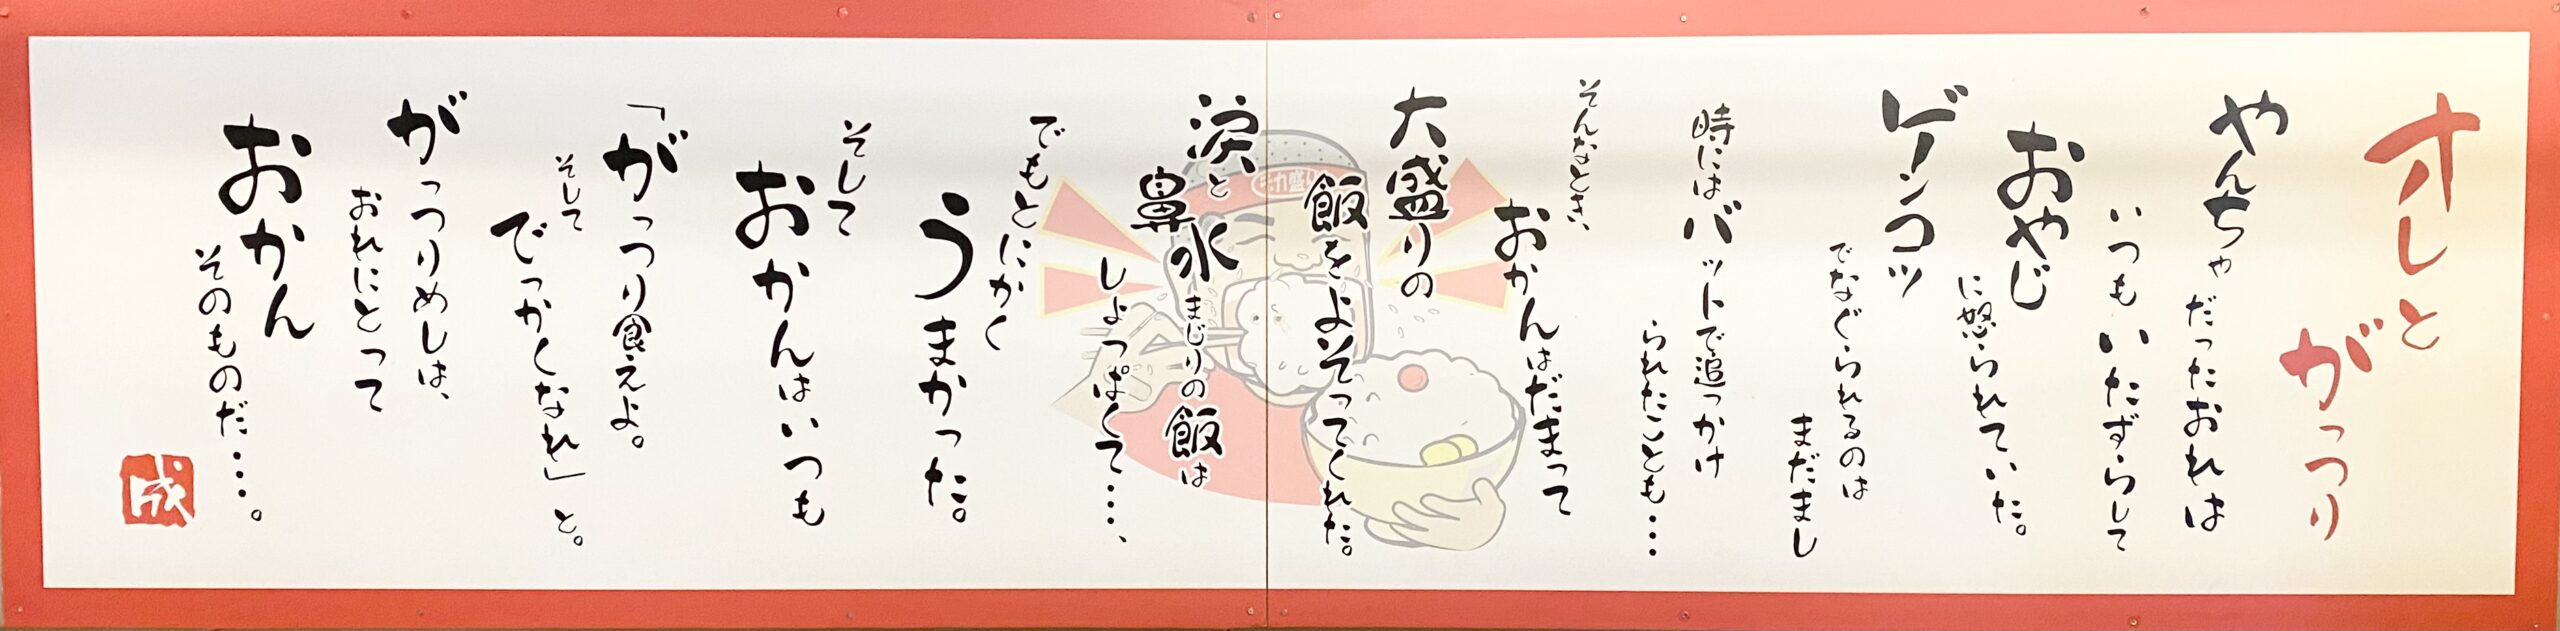 オレと
がっつり
やんちゃだったおれは
いつもいたずらして
おやじ
に怒られていた。
ゲンコツ
でなぐられるのは
まだまし
時にはバットで追っかけ
られたことも…
そんなとき、
おかんはだまって
大盛りの
飯をよそってくれた。
涙と
鼻水まじりの飯は
しょっぱくて…、
でもとにかく
うまかった。
そして
おかんはいつも
「がっつり食えよ。
そして
でっかくなれ」と。
がっつりめしは、
おれにとって
おかん
そのものだ…。
成